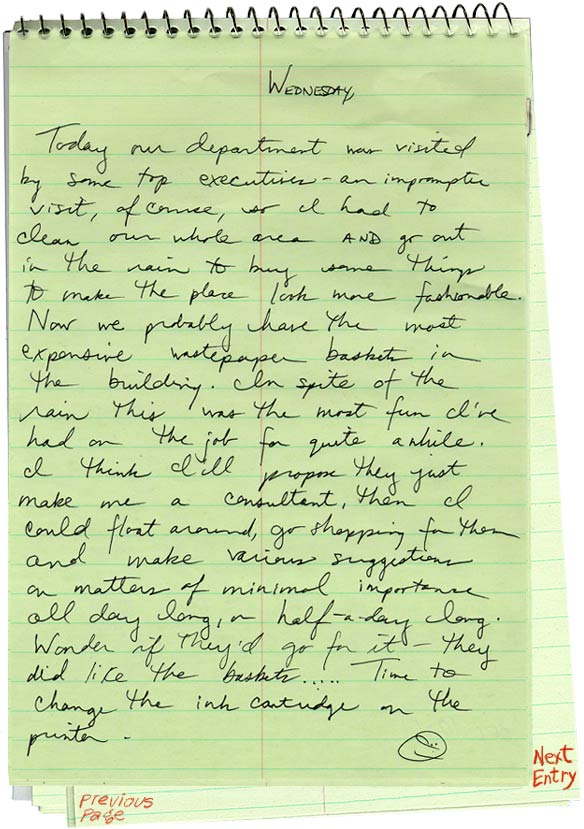 Wednesday,
Today our department was visited
by some top executives - an impromptu
visit, of course, so I had to
clean our whole area AND go out
in the rain to buy some things
to make the place look more fashionable.
Now we probably have the most
expensive wastepaper baskets in
the building. In spite of the
rain this was the most fun I've
had on the job for quite awhile.
I think I'll propose they just
make me a consultant, then I
could float around, go shopping for them
and make various suggestions
on matters of minimal importance
all day long, or half-a-day long.
Wonder if they'd go for it - they
did like the baskets..... Time to
change the ink cartridge on the
printer.
Next
Entry
Previous
Page